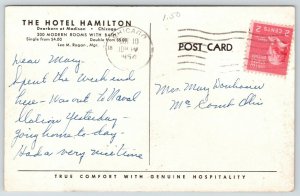 THE HOTEL HAMILTON
Dearborn at Madison • Chicago
300 MODERN ROOMS WITH BATH
Single from $4.00 Double from $6.00
Leo M. Regan, Mgr.
1.50
POST CARD
10
PM
1954
2 CENTS 2
Dear Mary,
Spent the week end
here - Was out to Naval
Station Yesterday -
going home to-day -
Had a very nice time
Mrs. Mary
Mc Comb Ohio
TRUE COMFORT WITH GENUINE HOSPITALITY